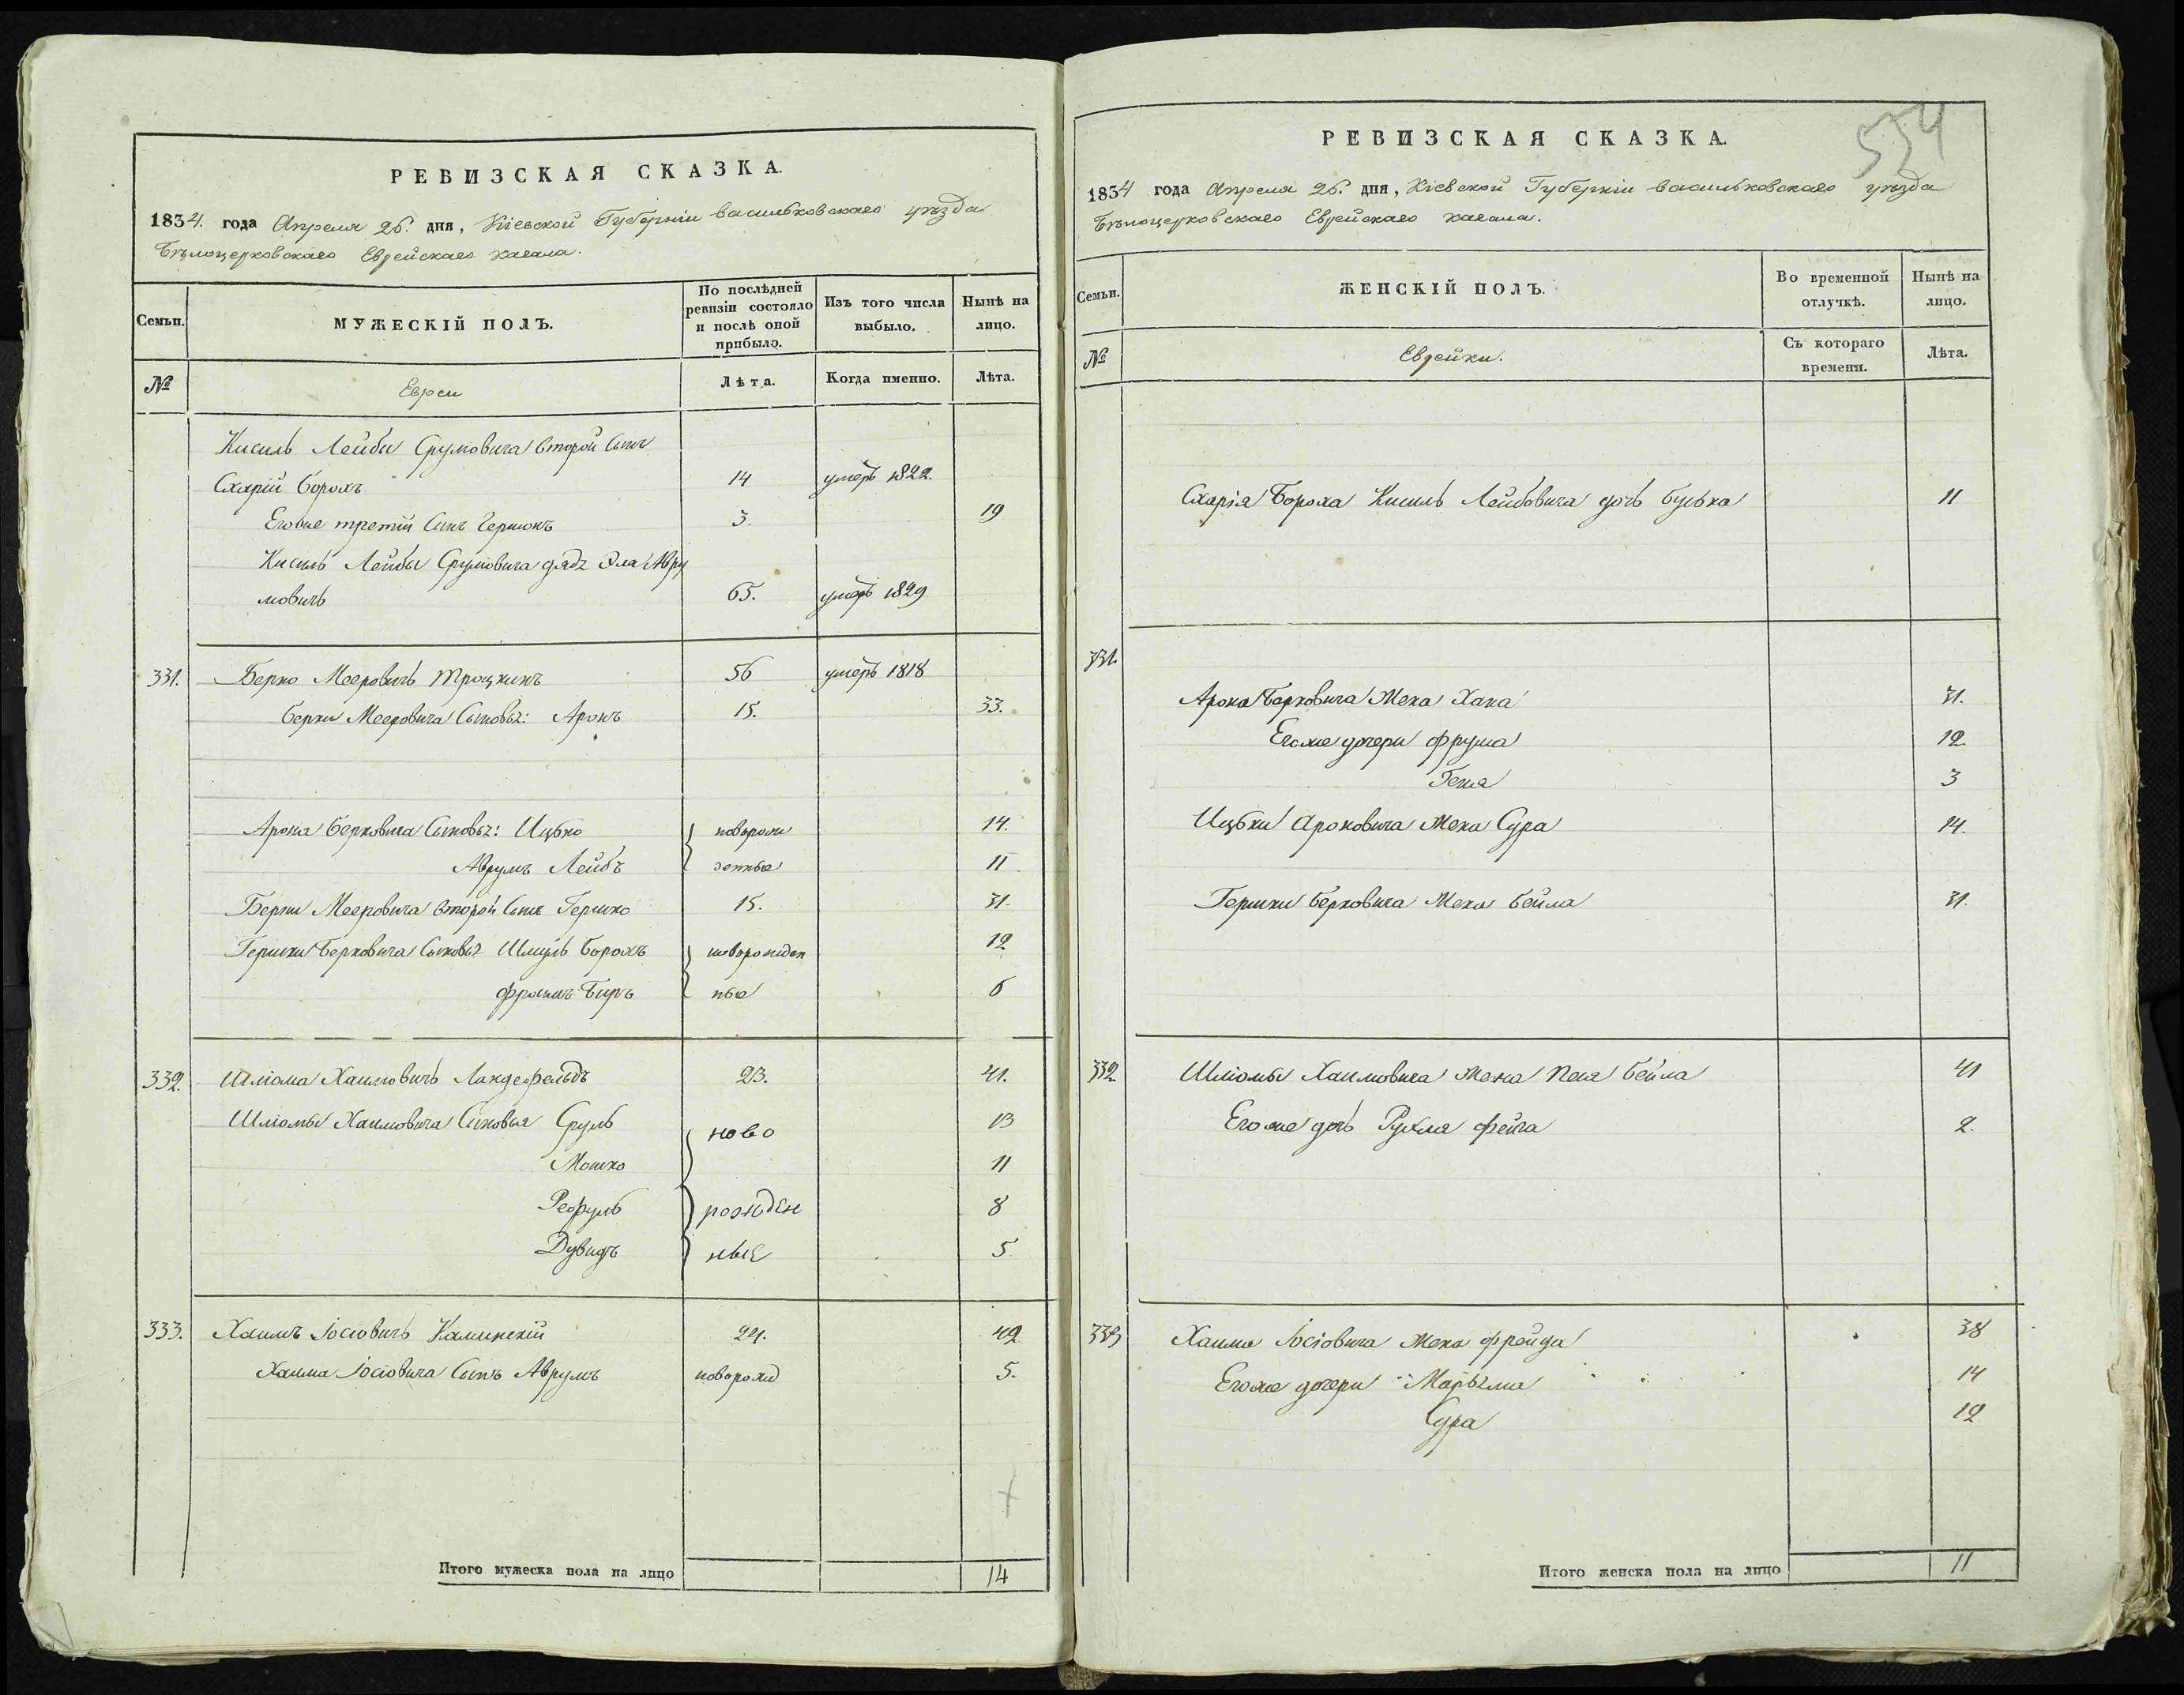 РЕВИЗСКАЯ СКАЗКА.
1834. года Апреля 26. дня, Кіевской Губерніи васильковскаго уѣзда
Бѣлоцерковскаго Еврейскаго кагала.
Семьи.
МУЖЕСКІЙ ПОЛЪ.
По послѣдней ревизіи состояло и послѣ оной прибыло.
Изъ того числа выбыло.
Нынѣ на лицо.
№
Евреи
Лѣта.
Когда именно.
Лѣта.
Кисиль Лейбы Срумовича второй Сынъ
Схарій Борохъ 14 умеръ 1822.
Егоже третій Сынъ Гершонъ 3. 19
Кисиль Лейбы Срумовича дядя Эла Авру
мовичъ 65. умеръ 1829
331. Берко Мееровичъ Троцкинъ 56 умеръ 1818
Берки Мееровича Сыновья: Аронъ 15. 33.
Арона Берковича Сыновья: Ицько новорож 14.
Аврумъ Лейбъ денные 11
Берки Мееровича второй Сынъ Гершко 15. 31.
Гершки Берковича Сыновья Шмуль Борохъ новорожден 12
Фроимъ Биръ ные 6
332. Шліома Хаимовичъ Ландефельдъ 23. 41.
Шліомы Хаимовича Сыновья Сруль ново 13
Мошко 11
Рефуль рожден 8
Дувидъ ные 5.
333. Хаимъ Іосіовичъ Каминскій 24. 42
Хаима Іосіовича Сынъ Аврумъ новорожд 5.
Итого мужеска пола на лицо 14
554
РЕВИЗСКАЯ СКАЗКА.
1834 года Апреля 26. дня, Кіевской Губерніи васильковскаго уѣзда
Бѣлоцерковскаго Еврейскаго кагала.
Семьи.
ЖЕНСКІЙ ПОЛЪ.
Во временной отлучкѣ.
Нынѣ на лицо.
№
Еврейки.
Съ котораго времени.
Лѣта.
Схарія Бороха Кисиль Лейбовича дочь Бузька 11
331.
Арона Берковича Жена Хана 31.
Егоже дочери Фрума 12
Геня 3
Ицьки Ароновича Жена Сура 14.
Гершки Берковича Жена Бейла 31.
332. Шліомы Хаимовича жена Песя Бейла 41
Егоже дочь Рухля Фейга 2.
333 Хаима Іосіовича Жена Фрейда 38
Егоже дочери Марьяма 14
Сура 12
Итого женска пола на лицо 11